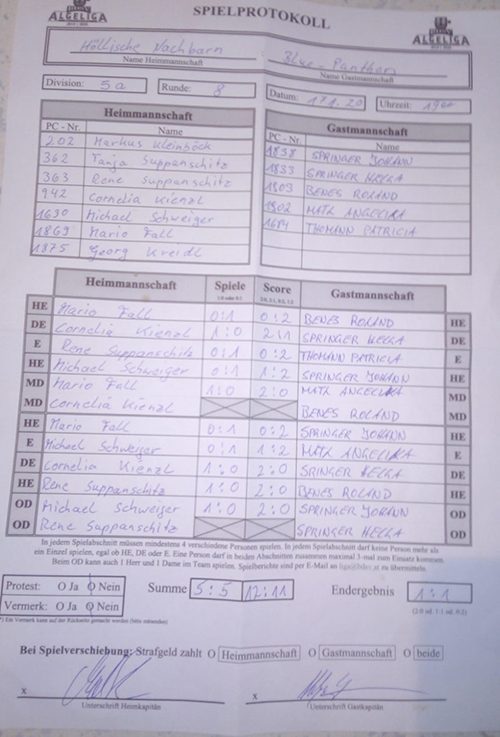 ALGELIGA
SPIELPROTOKOLL
ALGELIGA
Höllische Nachbarn
Name Heimmannschaft
Blue-Panthers
Name Gastmannschaft
Division: 5a
Runde: 8
Datum: 17.1.20
Uhrzeit: 19
Heimmannschaft
PC - Nr. Name
202 Markus Kleinböck
362 Tanja Suppanschitz
363 Rene Suppanschitz
942 Cornelia Kienzl
1690 Michael Schweiger
1869 Mario Fall
1875 Georg Kreidl
Gastmannschaft
PC - Nr. Name
1838 SPRINGER JOHANN
1833 SPRINGER HELLA
1803 BENES ROLAND
1802 MATZ ANGELIKA
1684 THOMANN PATRICIA
Heimmannschaft Spiele Score Gastmannschaft
HE Mario Fall 0:1 0:2 BENES ROLAND HE
DE Cornelia Kienzl 1:0 2:1 SPRINGER HELLA DE
E Rene Suppanschitz 0:1 0:2 THOMANN PATRICIA E
HE Michael Schweiger 0:1 1:2 SPRINGER JOHANN HE
MD Mario Fall 1:0 2:0 MATZ ANGELIKA MD
MD Cornelia Kienzl BENES ROLAND MD
HE Mario Fall 0:1 0:2 SPRINGER JOHANN HE
E Michael Schweiger 0:1 1:2 MATZ ANGELIKA E
DE Cornelia Kienzl 1:0 2:0 SRINGER HELLA DE
HE Rene Suppanschitz 1:0 2:0 BENES ROLAND HE
OD Michael Schweiger 1:0 2:0 SPRINGER JOHANN OD
OD Rene Suppanschitz SPRINGER HELLA OD
In jedem Spielabschnitt müssen mindestens 4 verschiedene Personen spielen. In jedem Spielabschnitt darf keine Person mehr als
ein Einzel spielen, egal ob HE, DE oder E. Eine Person darf in beiden Abschnitten zusammen maximal 3-mal zum Einsatz kommen.
Beim OD kann auch 1 Herr und 1 Dame im Team spielen. Spielberichte sind per E-Mail an zu übermitteln.
Protest: O Ja O Nein
Summe 5:5 12:11
Endergebnis 1:1
Vermerk: O Ja O Nein
(2:0 od. 1:1 od. 0:2)
*) Ein Vermerk kann auf der Rückseite gemacht werden (bitte umseitig)
Bei Spielverschiebung: Strafgeld zahlt O Heimmannschaft O Gastmannschaft O beide
x
x
Unterschrift Heimkapitän
Unterschrift Gastkapitän